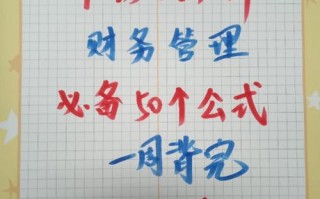 财务管理
必备50个公式
一周背完